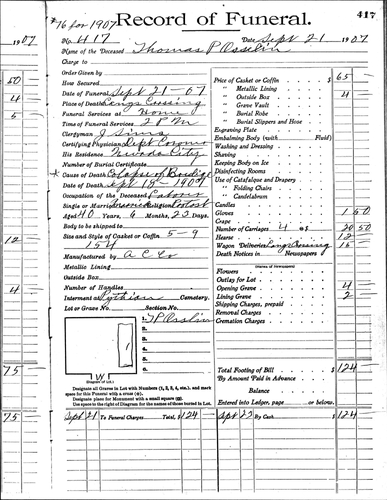 #76 for 1907
Record of Funeral.
417
1907
No. 417
Date Sept 21 1907
Name of the Deceased Thomas P Osslin
Charge to
Order Given by
How Secured
Date of Funeral Sept 21-07
Place of Death Longs Crossing
Funeral Services at Home
Time of Funeral Services 2 P M
Clergyman J Sims
Certifying Physician Dept Coroner
His Residence Nevada City
Number of Burial Certificate
Cause of Death Colapse of Bridge
Date of Death Sept 18-1907
Occupation of the Deceased
Single or Married Religion
Aged 40 Years, 6 Months, 23 Days.
Body to be shipped to
Size and Style of Casket or Coffin 5-9
154
Manufactured by A C Co
Metallic Lining
Outside Box
Number of Handles
Interment at Pythian Cemetery.
Lot or Grave No. Section No.
1. T P Osslin
2.
3.
4.
5.
6.
W
(Diagram of Lot.)
Designate all Graves in Lot with Numbers (1, 2, 3, 4, etc.), and mark
space for this Funeral with a cross (+).
Designate place for Monument with a small square (□).
Use space to the right of Diagram for the names of those buried in Lot.
Sept 21 To Funeral Charges, Total, $124
Price of Casket or Coffin $65
" Metallic Lining
" Outside Box 4
" Grave Vault
" Burial Robe
" Burial Slippers and Hose
Engraving Plate
Embalming Body (with Fluid)
Washing and Dressing
Shaving
Keeping Body on Ice
Disinfecting Rooms
Use of Catafalque and Drapery
" Folding Chairs
" Candelabrum
Candles
Gloves 1 50
Crape
Number of Carriages 4 @ $ 20 50
Hearse 12
Wagon Deliveries Longs Crossing 15
Death Notices in Newspapers
(Names of Newspapers)
Flowers
Outlay for Lot
Opening Grave 4
Lining Grave 2
Shipping Charges, prepaid
Removal Charges
Cremation Charges
Total Footing of Bill $124
By Amount Paid in Advance
Balance
Entered into Ledger, page or below.
Sept 23 By Cash $124
50
4
5
12
4
75
75